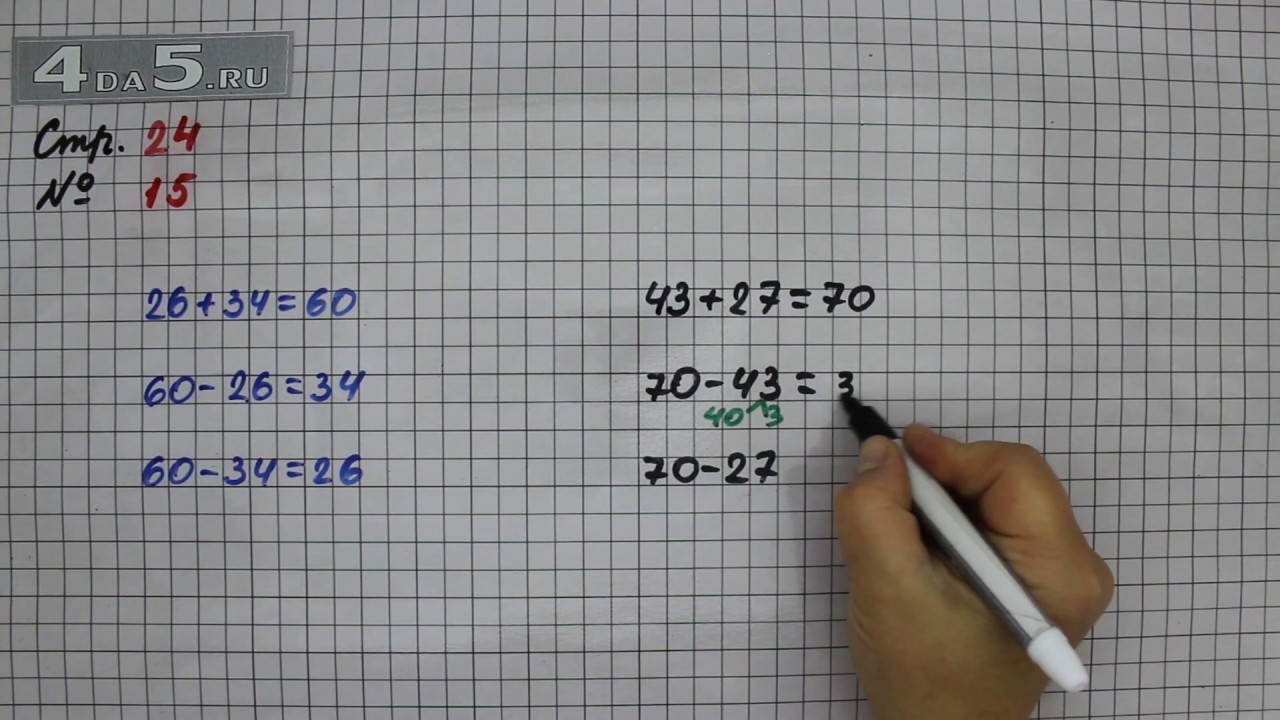 4DA5.RU
Стр. 24
№ 15
26+34=60
60-26=34
60-34=26
43+27=70
70-43=3
40 3
70-27